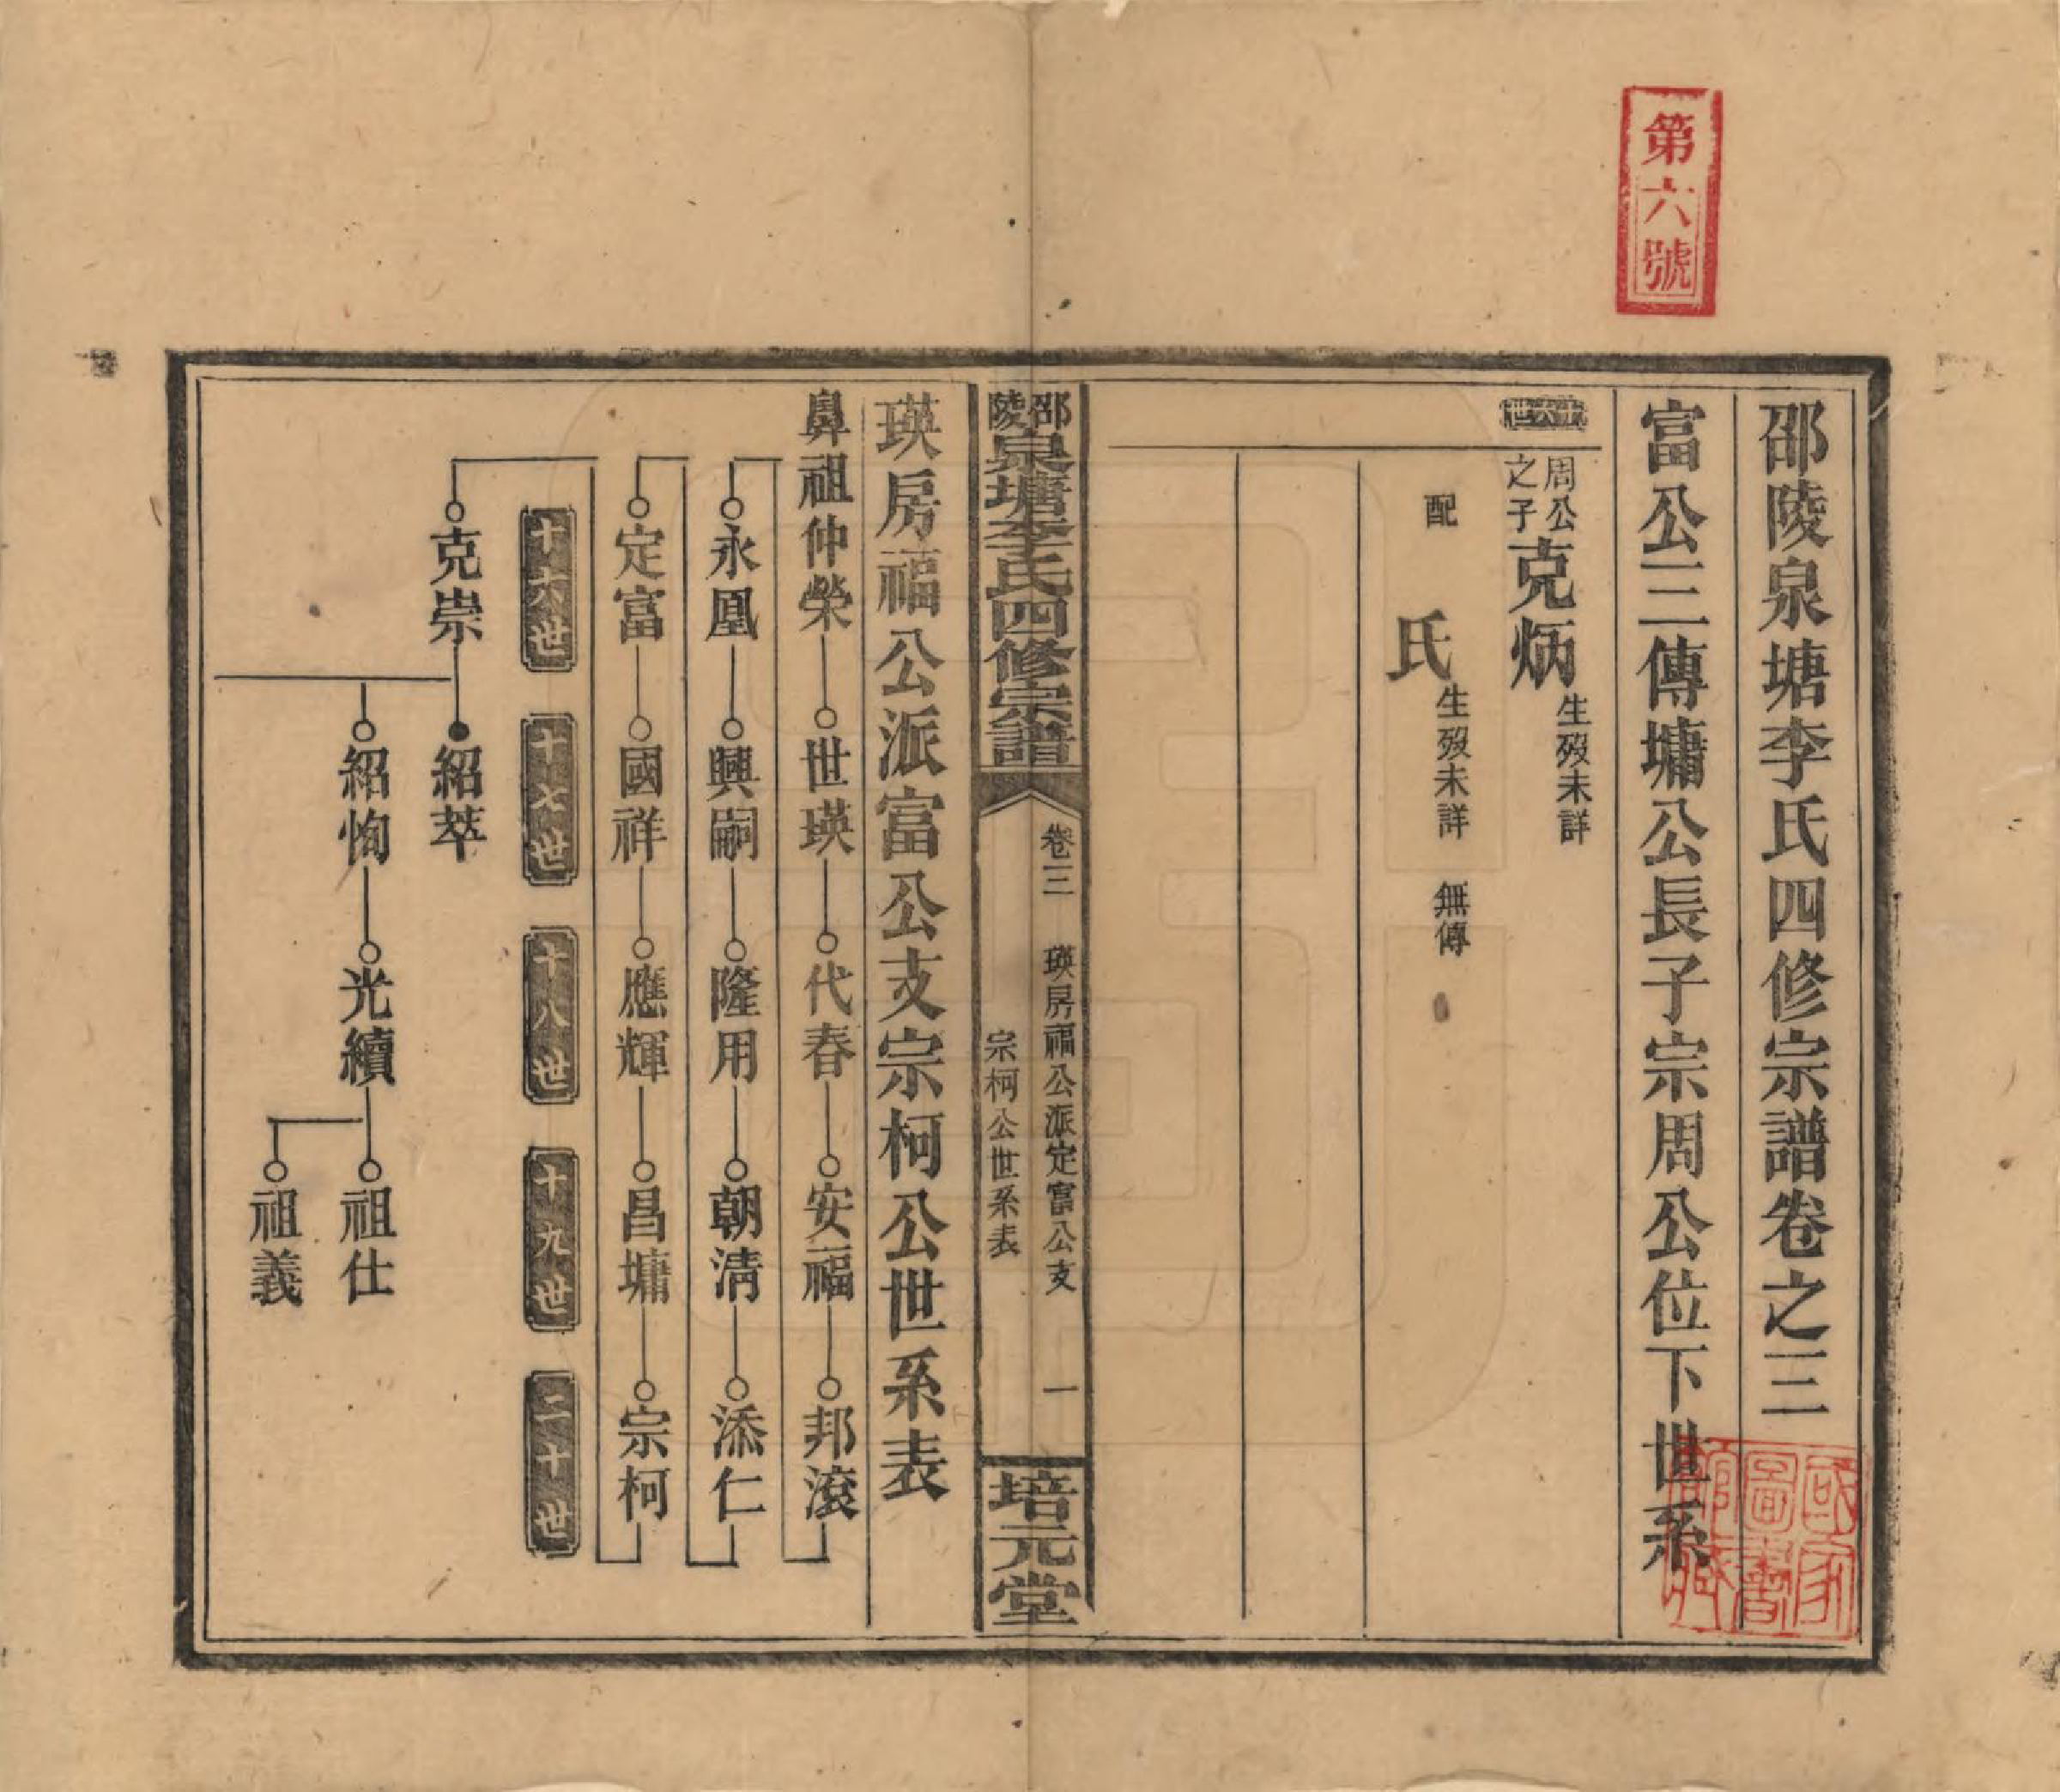 第六號
邵陵泉塘李氏四修宗譜卷之三
富公三傳墉公長子宗周公位下世系
十六世
周公之子
克炳
生歿未詳
配
氏
生歿未詳 無傳
邵陵泉塘李氏四修宗譜
卷三 瑛房福公派定富公支
宗柯公世系表
一
培元堂
國家圖書館藏
瑛房福公派富公支宗柯公世系表
鼻祖仲榮 世瑛 代春 安福 邦滾
永凰 興嗣 隆用 朝清 添仁
定富 國祥 應輝 昌墉 宗柯
十六世 十七世 十八世 十九世 二十世
克崇 紹萃
紹恂 光續 祖仕
祖義